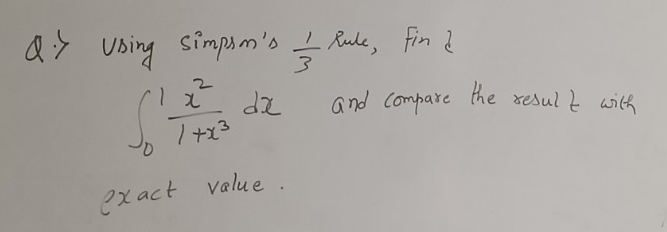 Q.> Using Simpson's 1/3 Rule, find
∫₀¹ x²/(1+x³) dx and compare the result with
exact value.